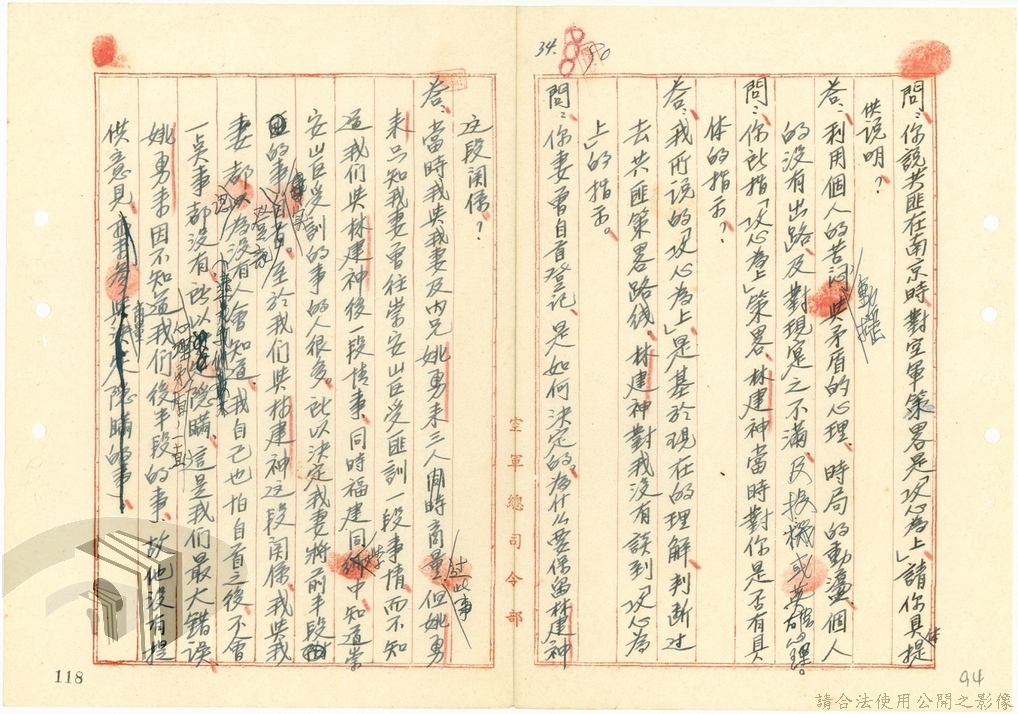 34.
50
問：你說共匪在南京時對空軍策畧是「攻心為上」請你具體提
供說明？
答：利用個人的苦悶與矛盾的心理、動搖時局的動盪、個人
的沒有出路、及對現寔之不滿、及投機或英雄心理。
問：你所指「攻心為上」策畧、林建神當時對你是否有具
体的指示？
答：我所說的「攻心為上」是基於現在的理解判断过
去共匪策畧路线。林建神對我没有談到「攻心為
上」的指示。
問：你妻曾自首登記、是如何決定的。為什么要保留林建神
94
空軍總司令部
这段関係？
答：當時我與我妻及內兄姚勇来三人同時商量过此事、但姚勇
来只知我妻曾往崇安山区受匪訓一段事情而不知
道我们與林建神後一段情事、同時福建同學中知道崇
安山区受訓的事的人很多。所以決定我妻將前半段
的事自首登記。至於我们與林建神这段関係、我與我
妻都以為没有人會知道、我自己也怕自首之後不會
一点事都没有、所以隐瞞、這是我们最大错误
心理、一直
姚勇来因不知道我们後半段的事、故他没有提
供意見、隐瞞的事、
118
請合法使用公開之影像